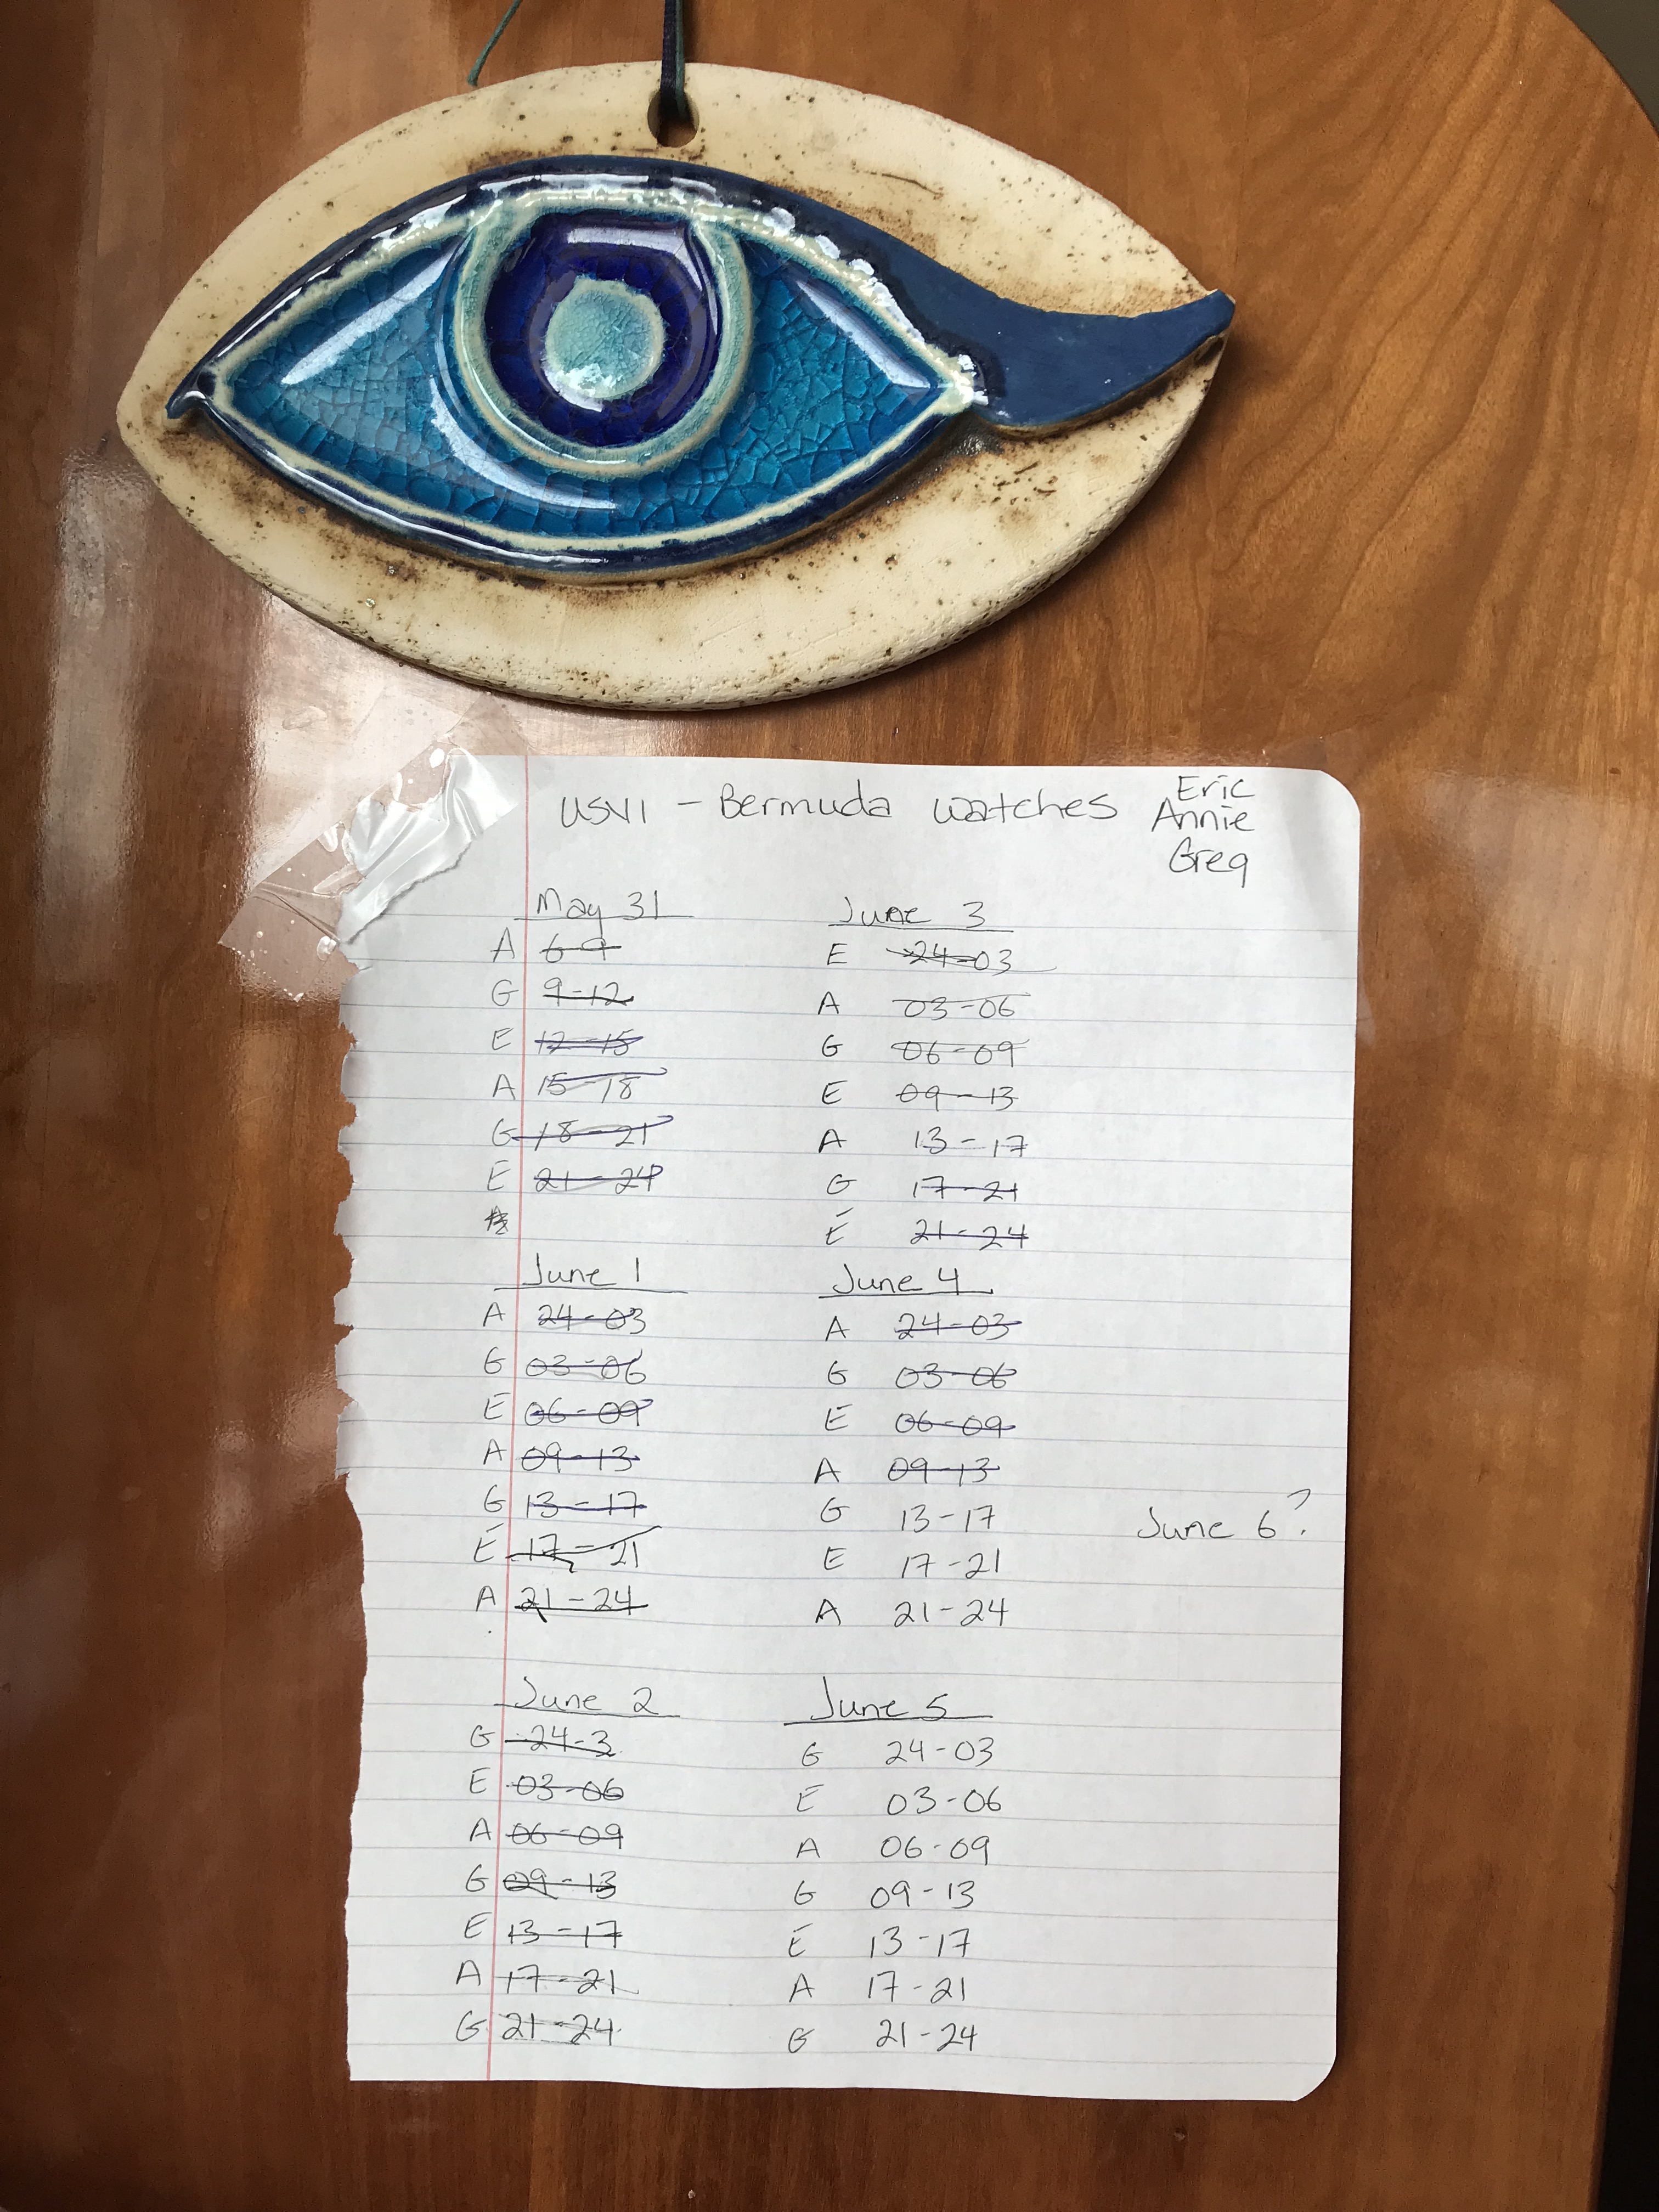 USVI - Bermuda Watches
Eric
Annie
Greg
May 31
A 6-9
G 9-12
E 12-15
A 15-18
G 18-21
E 21-24
June 1
A 24-03
G 03-06
E 06-09
A 09-13
G 13-17
E 17-21
A 21-24
June 2
G 24-3
E 03-06
A 06-09
G 09-13
E 13-17
A 17-21
G 21-24
June 3
E 24-03
A 03-06
G 06-09
E 09-13
A 13-17
G 17-21
E 21-24
June 4
A 24-03
G 03-06
E 06-09
A 09-13
G 13-17
E 17-21
A 21-24
June 5
G 24-03
E 03-06
A 06-09
G 09-13
E 13-17
A 17-21
G 21-24
June 6?